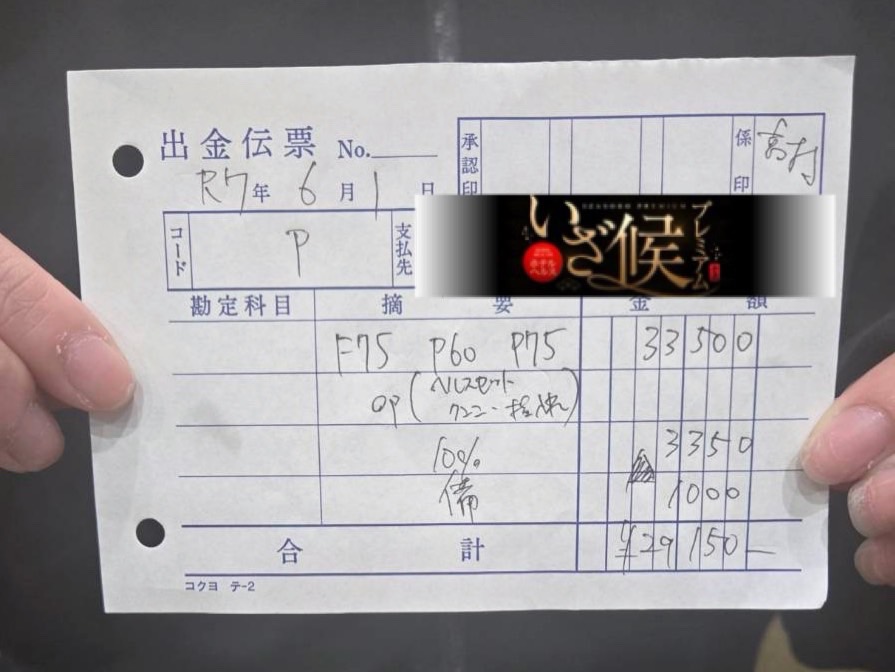 出金伝票 No.
R7年 6月 1日
承認印
係印 高村
コード P 支払先
いざ候
プレミアム
ホテルヘルス
勘定科目 摘要 金額
F75 P60 P75 33500
OP(ヘルスセット
クンニ・指入れ)
10% 3350
備 1000
合計 ¥29150-
コクヨ テ-2